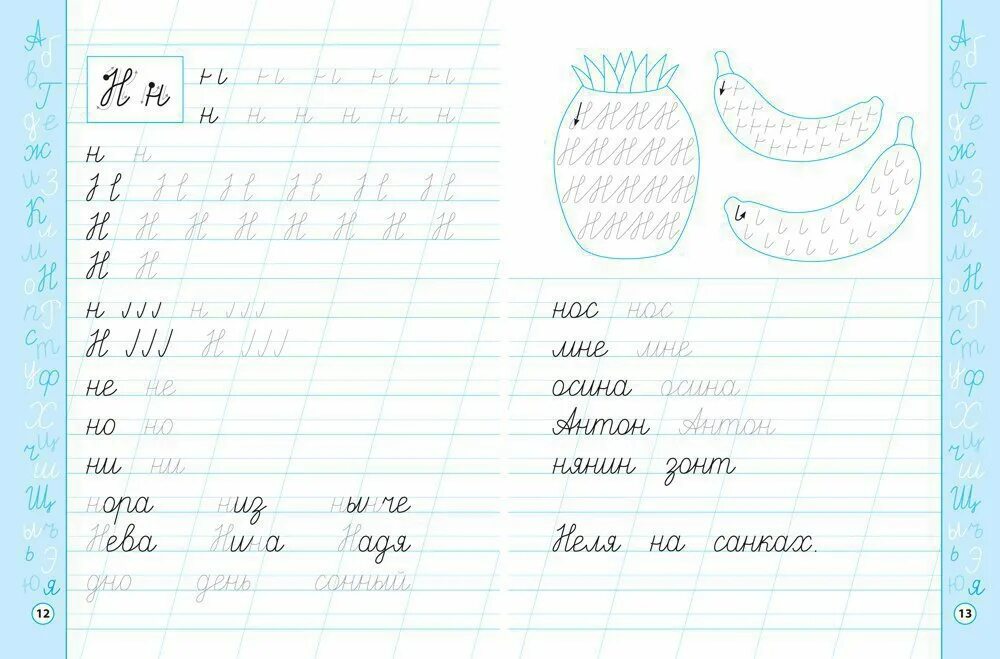 Н н
н
н н н н н н
н н
Н Н Н Н Н Н Н Н
Н Н
н н
Н Н
не не
но но
ни ни
нора низ нынче
Нева Нина Надя
дно день сонный
12
Н Н Н Н
Н Н Н Н Н
Н Н Н Н Н
Н Н Н Н
нос нос
мне мне
осина осина
Антон Антон
нянин зонт
Неля на санках.
13
А б
в Г
д е
ж
и З
К л
м Н
о п Р
с т
у ф
Х
ч Ц
ш
Щ
ы ъ
ь Э
Ю я